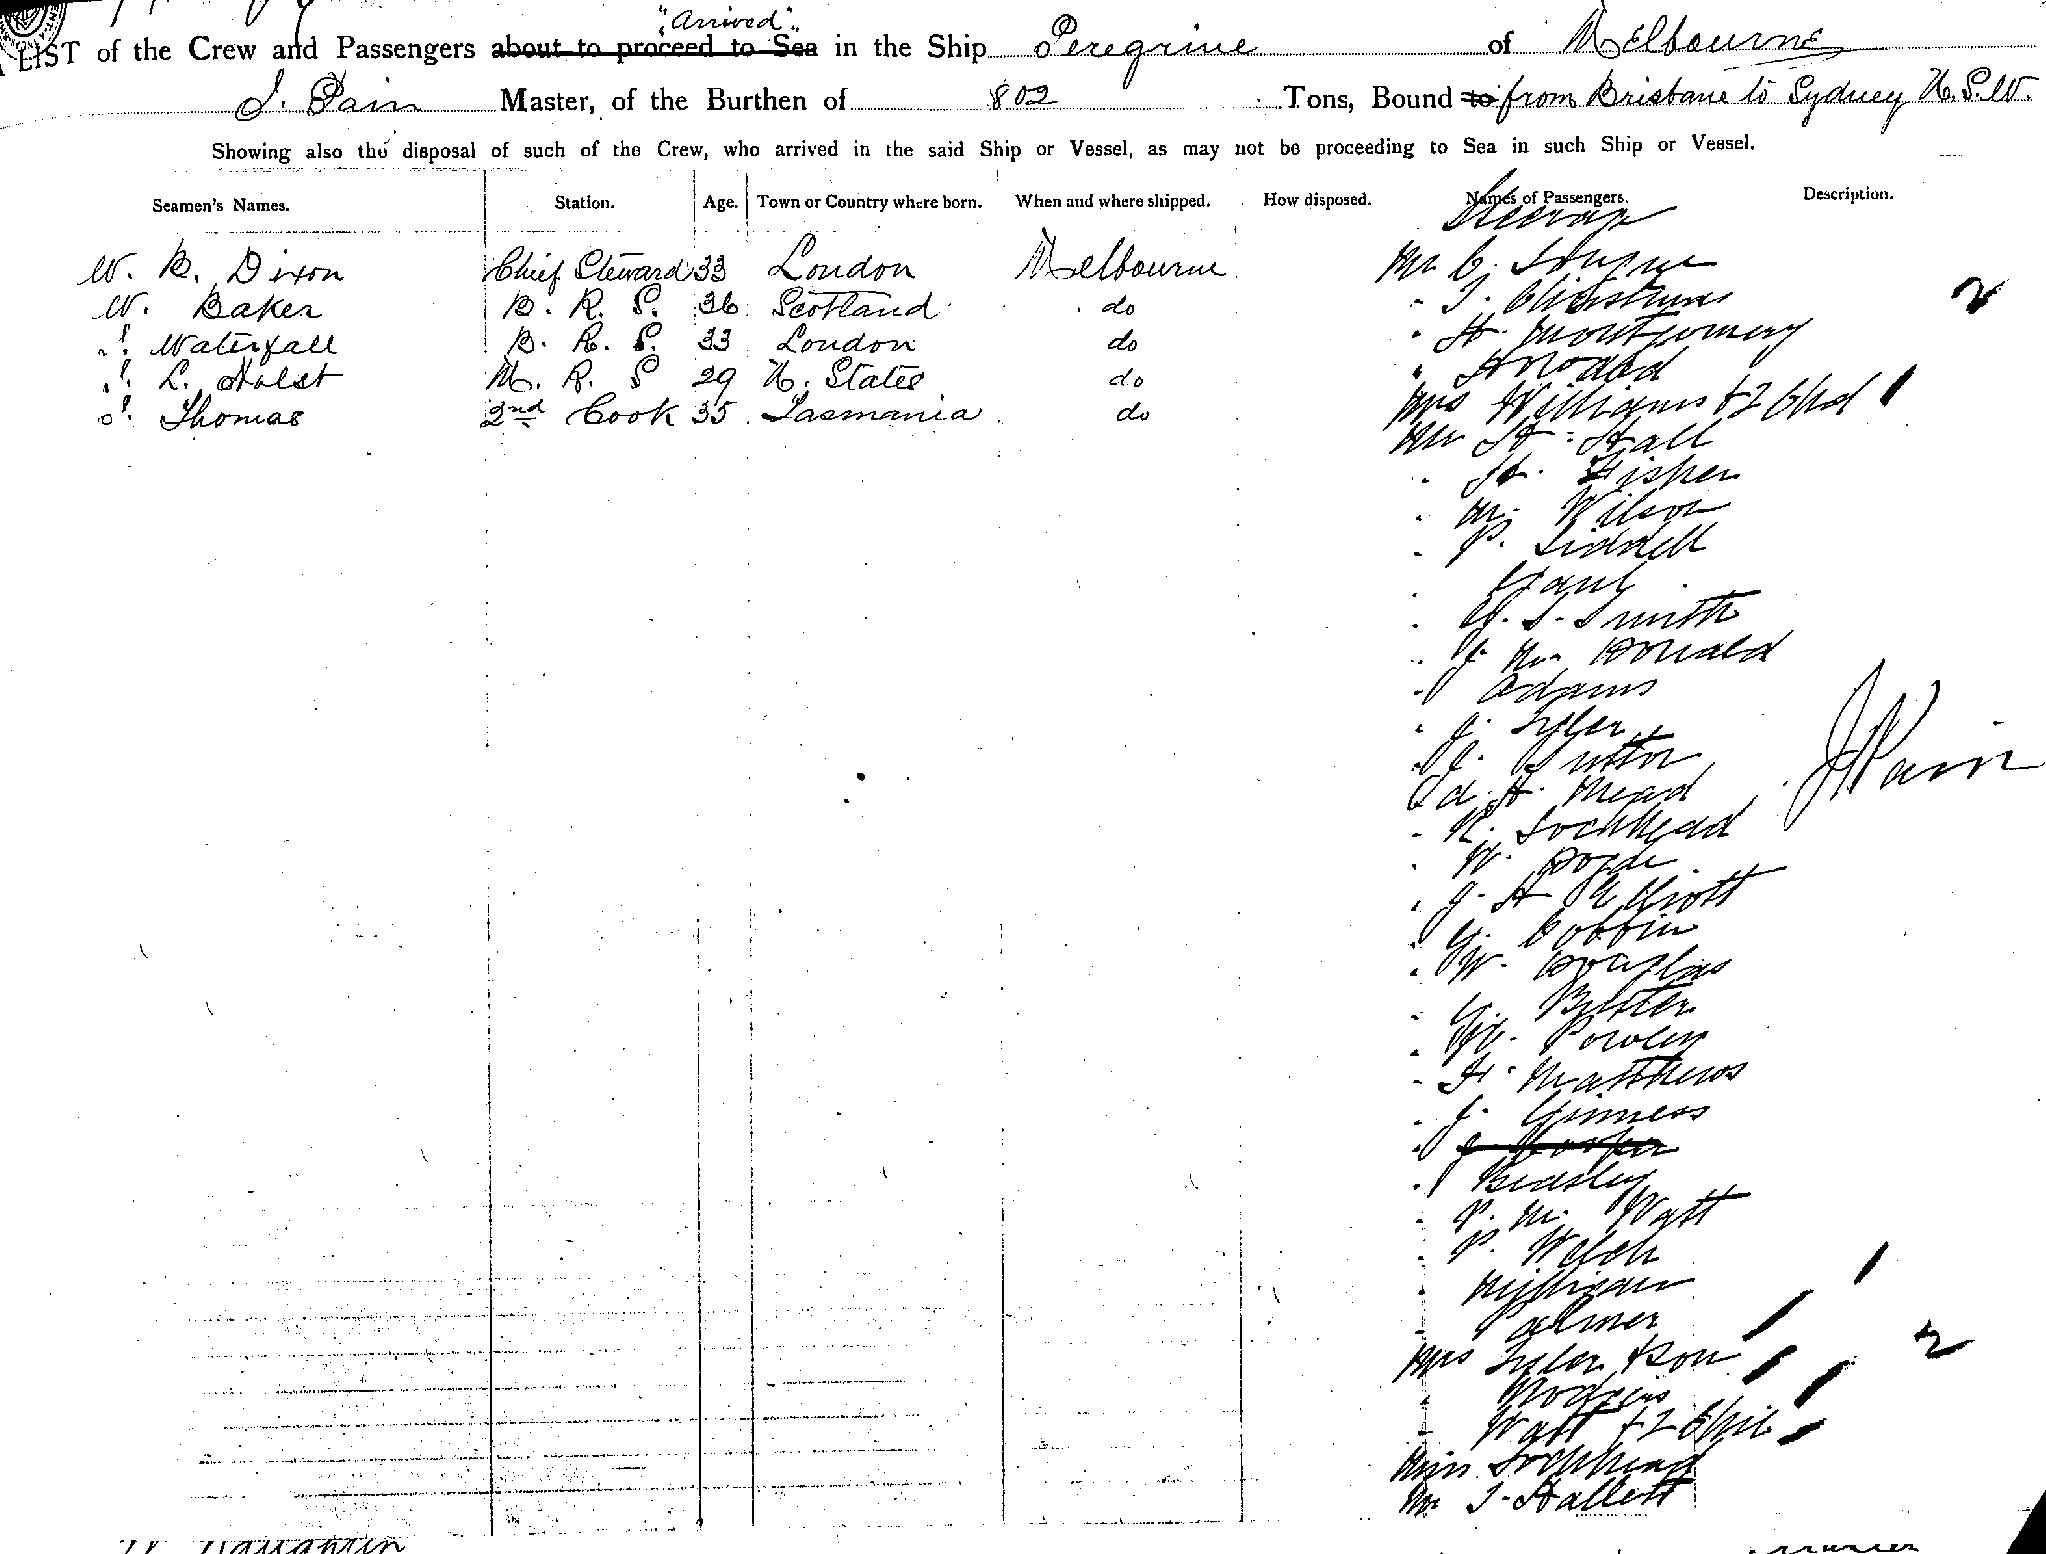 "Arrived"
LIST of the Crew and Passengers about to proceed to Sea in the Ship Peregrine of Melbourne
J. Pain Master, of the Burthen of 802 Tons, Bound to from Brisbane to Sydney N.S.W.
Showing also the disposal of such of the Crew, who arrived in the said Ship or Vessel, as may not be proceeding to Sea in such Ship or Vessel.
Seamen's Names. Station. Age. Town or Country where born. When and where shipped. How disposed. Names of Passengers. Description.
W. B. Dixon Chief Steward 33 London Melbourne
W. Baker B. R. S. 36 Scotland do
J. Waterfall B. R. S. 33 London do
J. L. Holst M. R. S 29 U. States do
J. Thomas 2nd Cook 35 Tasmania do
Steerage
Mr C.
" J. 2
" H. Montgomery
"
Mrs Williams + 2 Chd 1
Mr H. Hall
" H. Fisher
" M. Wilson
" P. Siddell
"
" G. S. Smith
" J. Mc Donald
" Adams
" J. Tyler
" J. Sutton
" A. H. Mead
" R. Lochhead
" W. Boyde
" J. H Elliott
" G. Cobbin
" W. Douglas
" G. Butler
" W. Powley
" H. Matthews
" J. Ginness
" J. Cooper
" Beasley
" P. M. Watt
" P. Welch
" Milligan
" Palmer
Mrs Tyler & son 2
" Rodgers
" Watt + 2 Chil
Miss Lochhead
Mr J. Hallett
J Pain